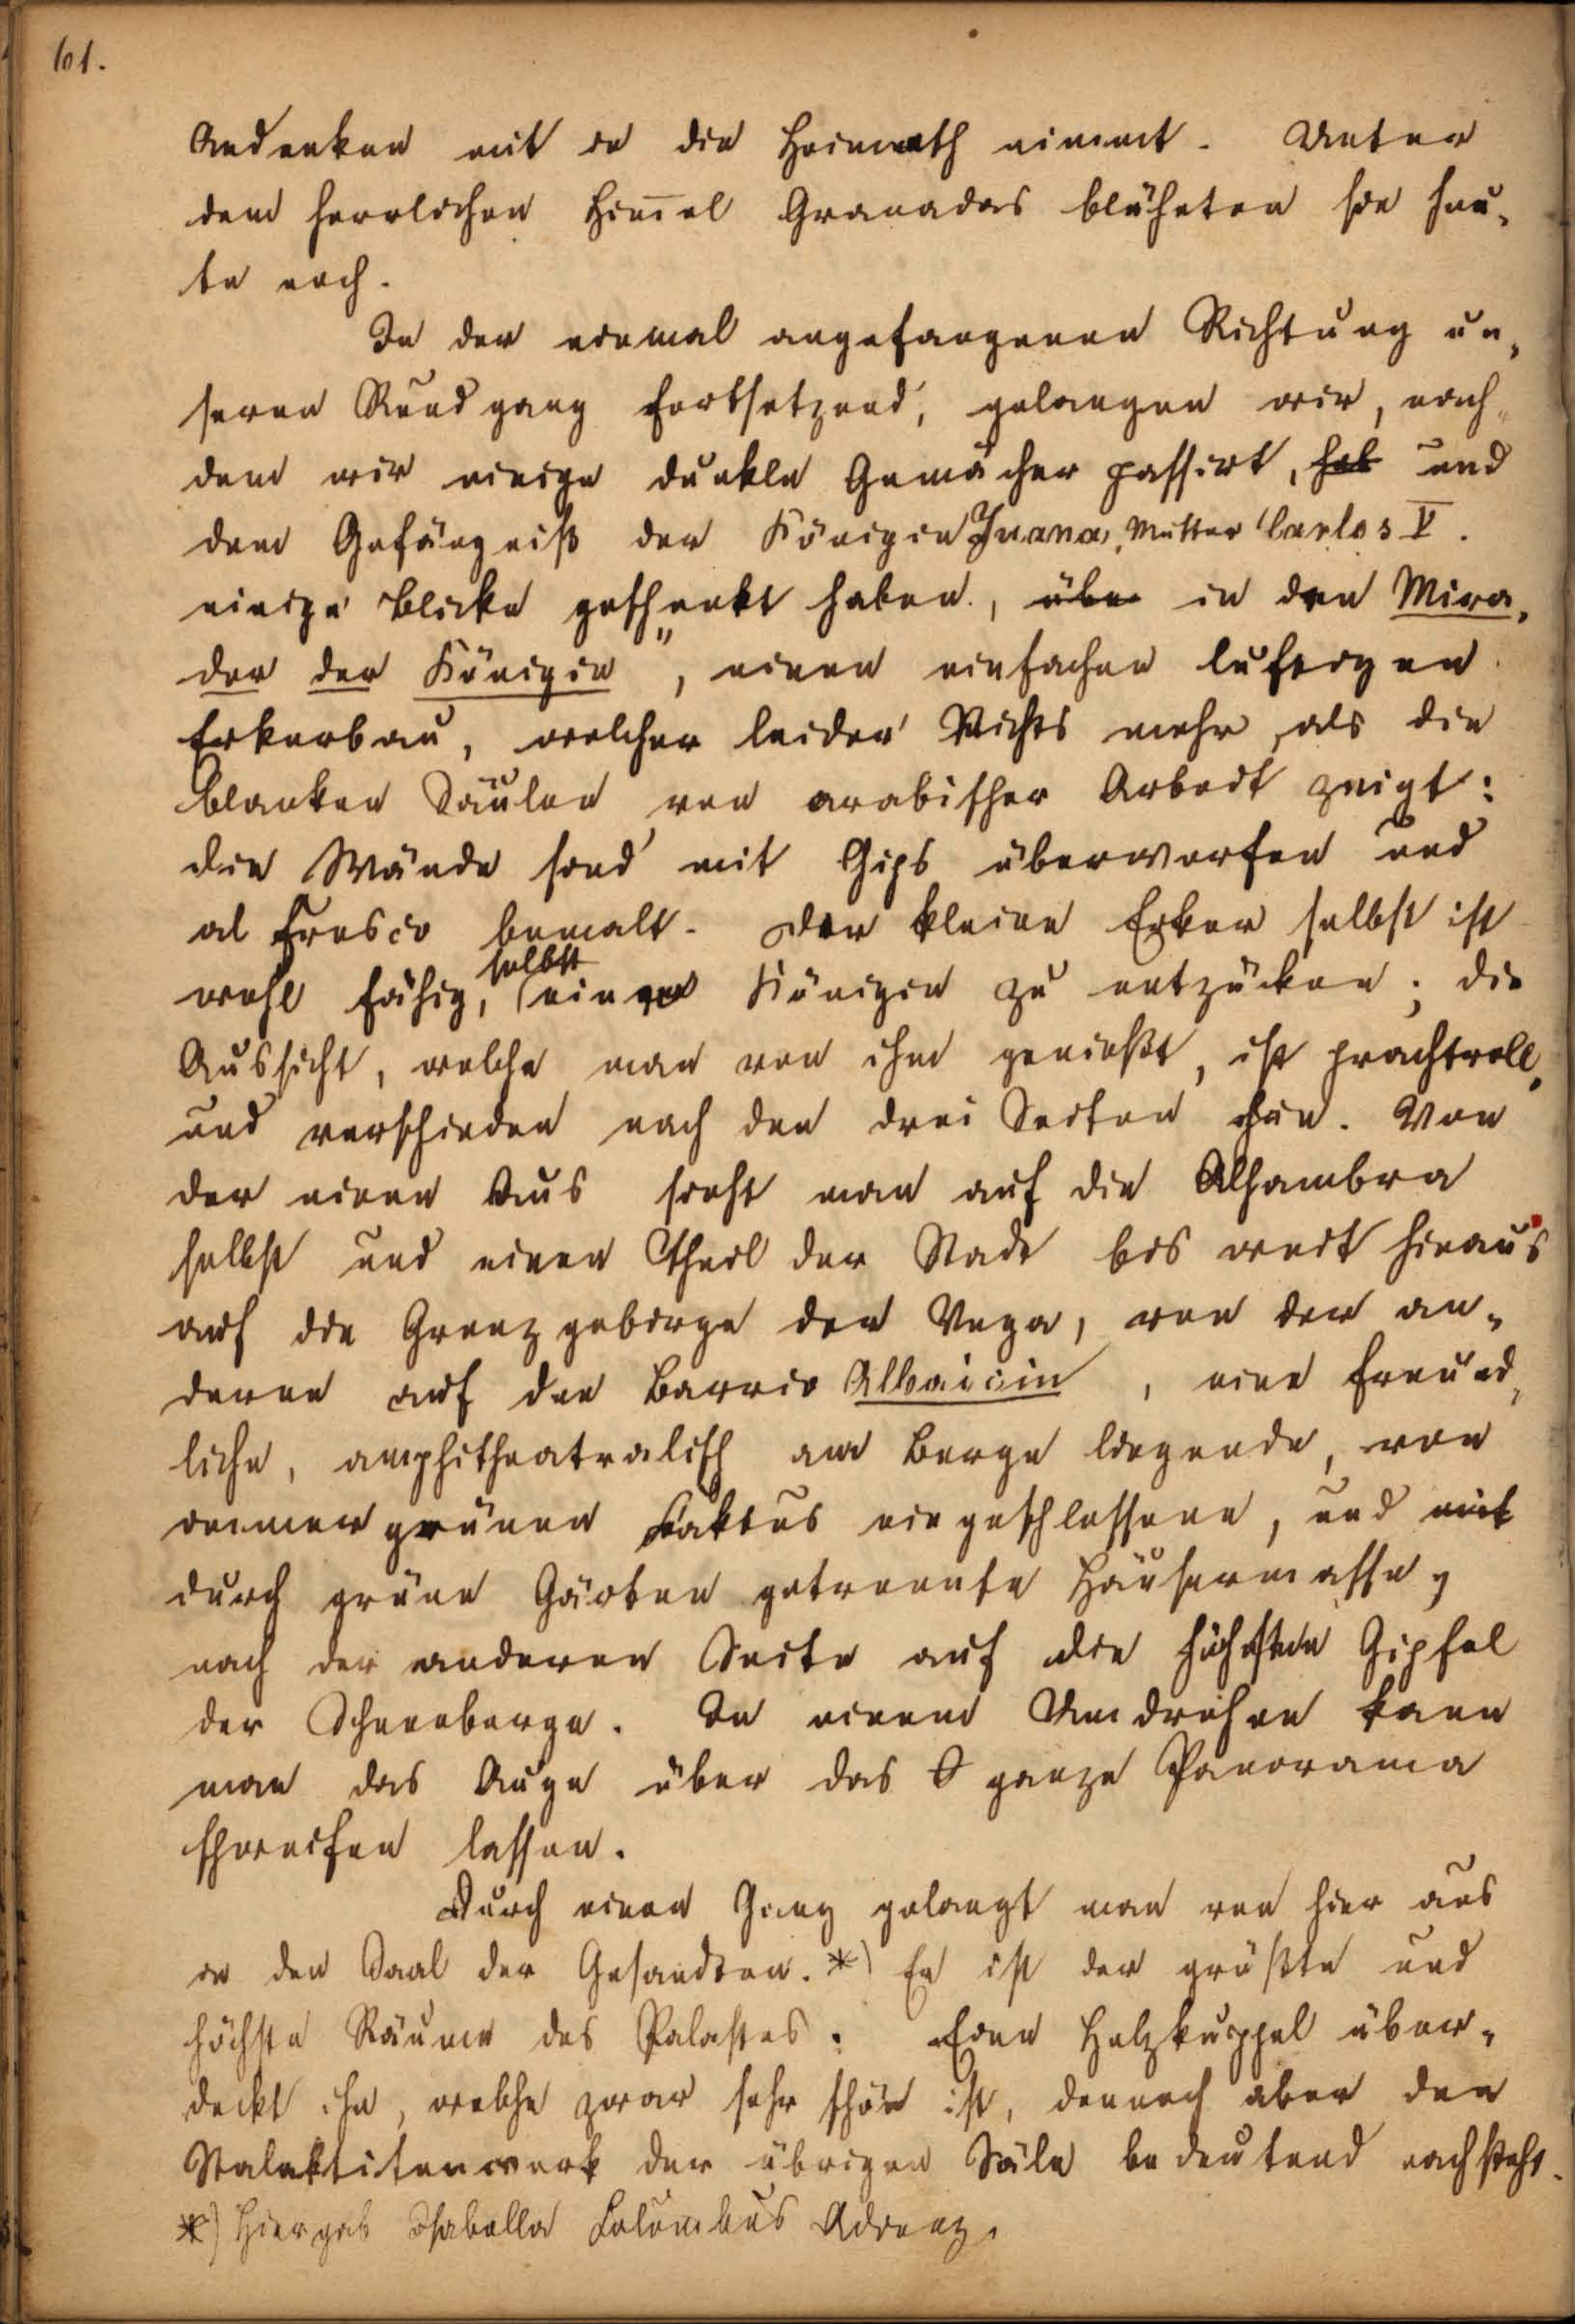 61.
Andenken mit in die Heimath nimmt. Unter
dem herrlichen Him̄el Granadas blühten sie heu-
te noch.
In der einmal angefangenen Richtung un-
seren Rundgang fortsetzend, gelangen wir, nach-
dem wir einige dunkle Gemächer passirt, hab und
dem Gefängniß der Königin Juana, Mutter Carlos V.
einige Blicke geschenkt haben, übe in den Mira-
dor der Königin", einen einfachen luftigen
Erkerbau, welcher leider Nichts mehr, als die
blanken Säulen von arabischer Arbeit zeigt:
die Wände sind mit Gips überworfen und
al Fresco bemalt. Der kleine Erker selbst ist
wohl fähig, selbst eine Königin zu entzücken; die
Aussicht, welche man von ihm genießt, ist prachtvoll,
und verschieden nach den drei Seiten hin. Von
der einen Aus sieht man auf die Alhambra
selbst und einen Theil der Stadt bis weit hinaus
auf die Grenzgebirge der Vega, von der an-
deren auf den Barrio Albaicin, eine freund-
liche, amphitheatralisch am Berge liegende, von
immergrünen Kaktus eingeschlossene, und mit
durch grüne Gärten getrennte Häusermasse,
nach der anderen Seite auf die höchsten Gipfel
der Schneeberge. In einem Umdrehen kann
man das Auge über das S ganze Panorama
schweifen lassen.
Durch einen Gang gelangt man von hier aus
in den Saal der Gesandten. *) Er ist der größte und
höchste Räume des Palastes. Eine Holzkuppel über-
deckt ihn, welche zwar sehr schön ist, dennoch aber den
Stalaktitenwerk der übrigen Säle bedeutend nachsteht.
*) Hier gab Isabella Columbus Adienz.